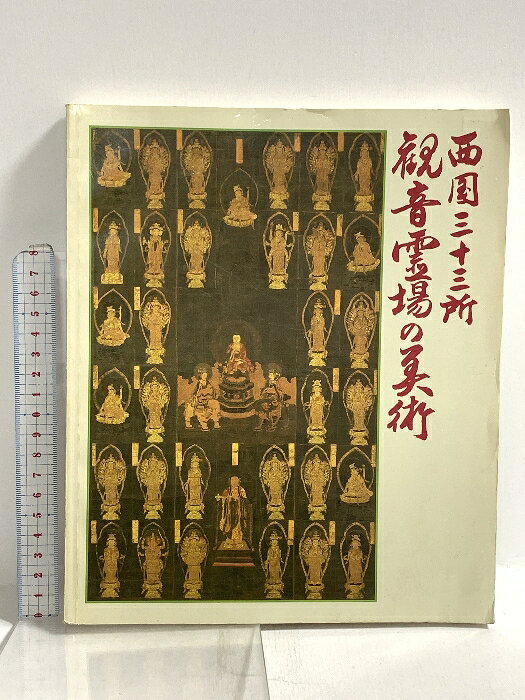 西国三十三所
観音霊場の美術